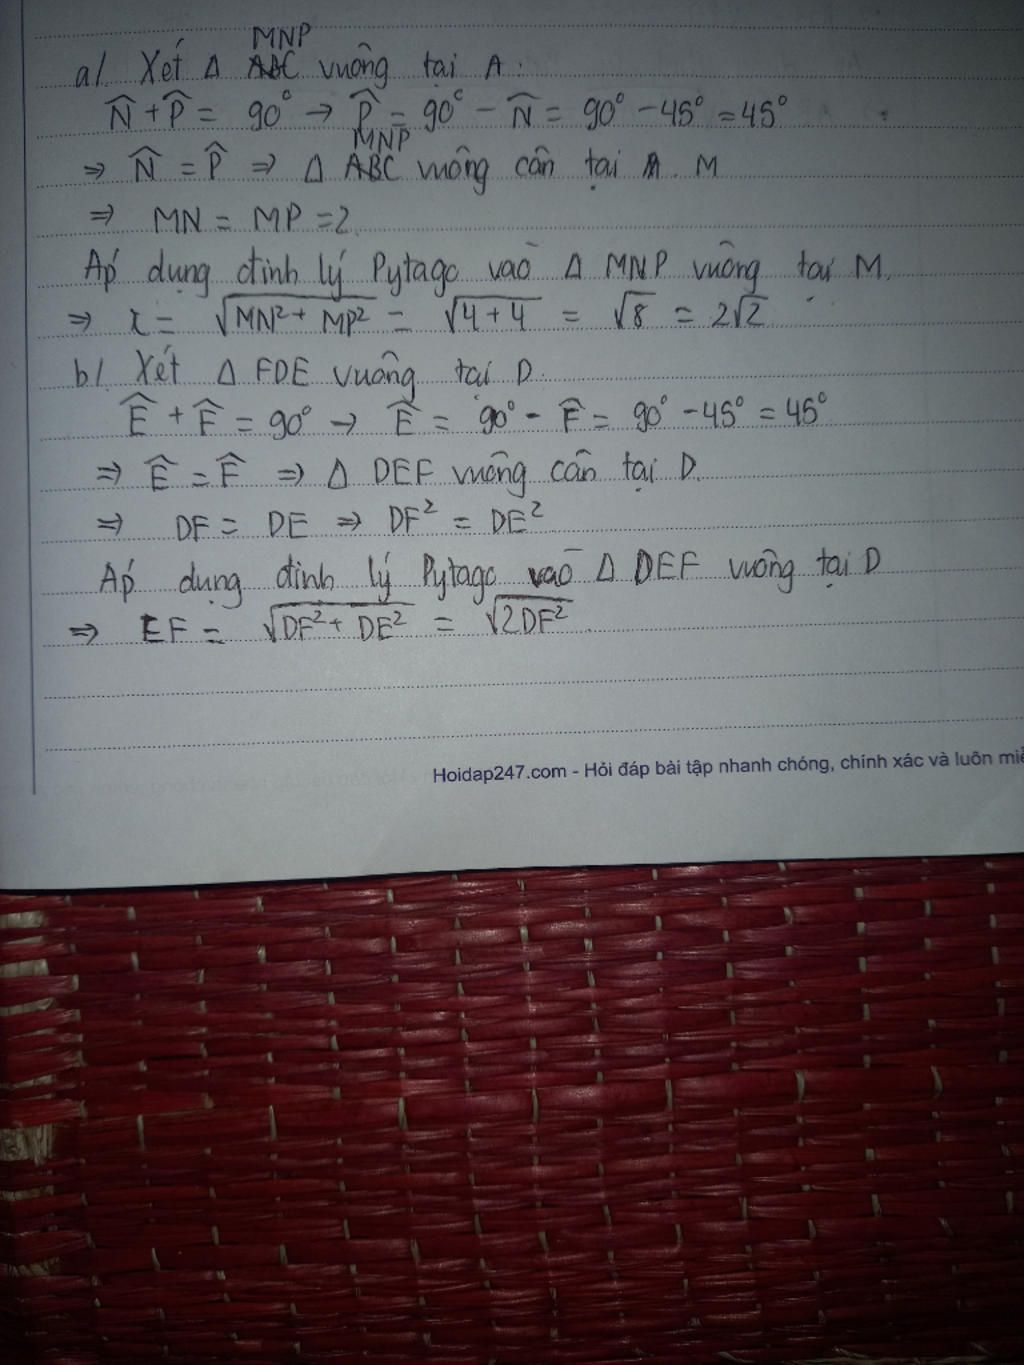 MNP
a/. Xét Δ ABC vuông tại A.
N̂ + P̂ = 90° → P̂ = 90° - N̂ = 90° - 45° = 45°
MNP
⇒ N̂ = P̂ ⇒ Δ ABC vuông cân tại A. M
⇒ MN = MP = 2
Áp dụng định lý Pytago vào Δ MNP vuông tại M.
⇒ x = √MN²+ MP² = √4+4 = √8 = 2√2
b/. Xét Δ FDE vuông tại D.
Ê + F̂ = 90° → Ê = 90° - F̂ = 90° - 45° = 45°
⇒ Ê = F̂ ⇒ Δ DEF vuông cân tại D.
⇒ DF = DE ⇒ DF² = DE²
Áp dụng định lý Pytago vào Δ DEF vuông tại D
⇒ EF = √DF²+ DE² = √2DF²
Hoidap247.com - Hỏi đáp bài tập nhanh chóng, chính xác và luôn